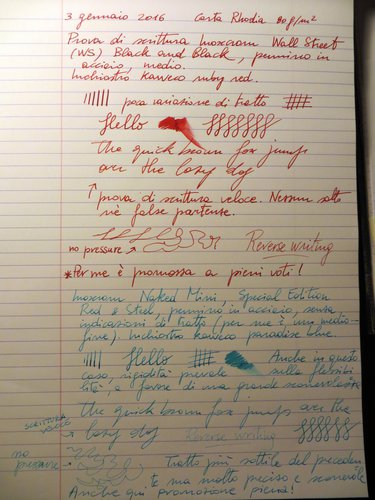 3 gennaio 2016 Carta Rhodia 80 g/m²
Prova di scrittura Inoxcrom Wall Street
(WS) Black and Black, pennino in
acciaio medio.
Inchiostro Kaweco ruby red.
poca variazione di tratto
Hello
The quick brown fox jumps
over the lazy dog
↑ prova di scrittura veloce. Nessun salto
nè false partenze.
no pressure → Reverse writing
*Per me è promossa a pieni voti!
Inoxcrom Naked Mini, Special Edition
Red & Steel, pennino in acciaio, senza
indicazioni di tratto (per me è un medio-
fine). Inchiostro Kaweco paradise blue.
Hello Anche in questo
caso, rigidità prevale sulla flessibi
lità, a favore di una grande scorrevolezza
The quick brown fox jumps over the
SCRITTURA VELOCE → lazy dog Reverse writing
no pressure → Tratto più sottile del preceden
te ma molto preciso e scorrevole
Anche qui promozione piena!